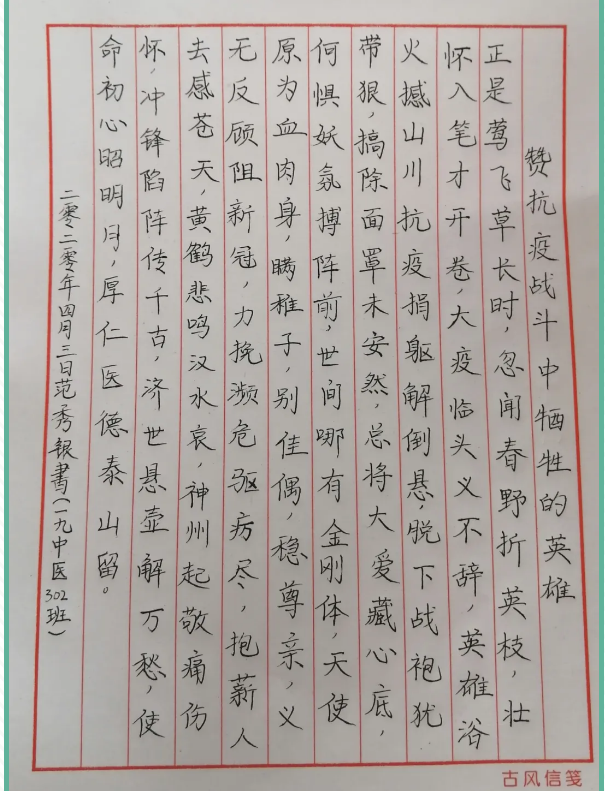 赞抗疫战斗中牺牲的英雄
正是莺飞草长时，忽闻春野折英枝，壮
怀入笔才开卷，大疫临头义不辞，英雄浴
火撼山川抗疫捐躯解倒悬，脱下战袍犹
带狠，搞除面罩未安然，总将大爱藏心底，
何惧妖氛搏阵前，世间哪有金刚体，天使
原为血肉身，瞒稚子，别佳偶，稳尊亲，义
无反顾阻新冠，力挽濒危驱疠尽，抱薪人
去感苍天，黄鹤悲鸣汉水哀，神州起敬痛伤
怀，冲锋陷阵传千古，济世悬壶解万愁，使
命初心昭明月，厚仁医德泰山留。
二零二零年四月三日范秀银書（一九中医302班）
古风信笺